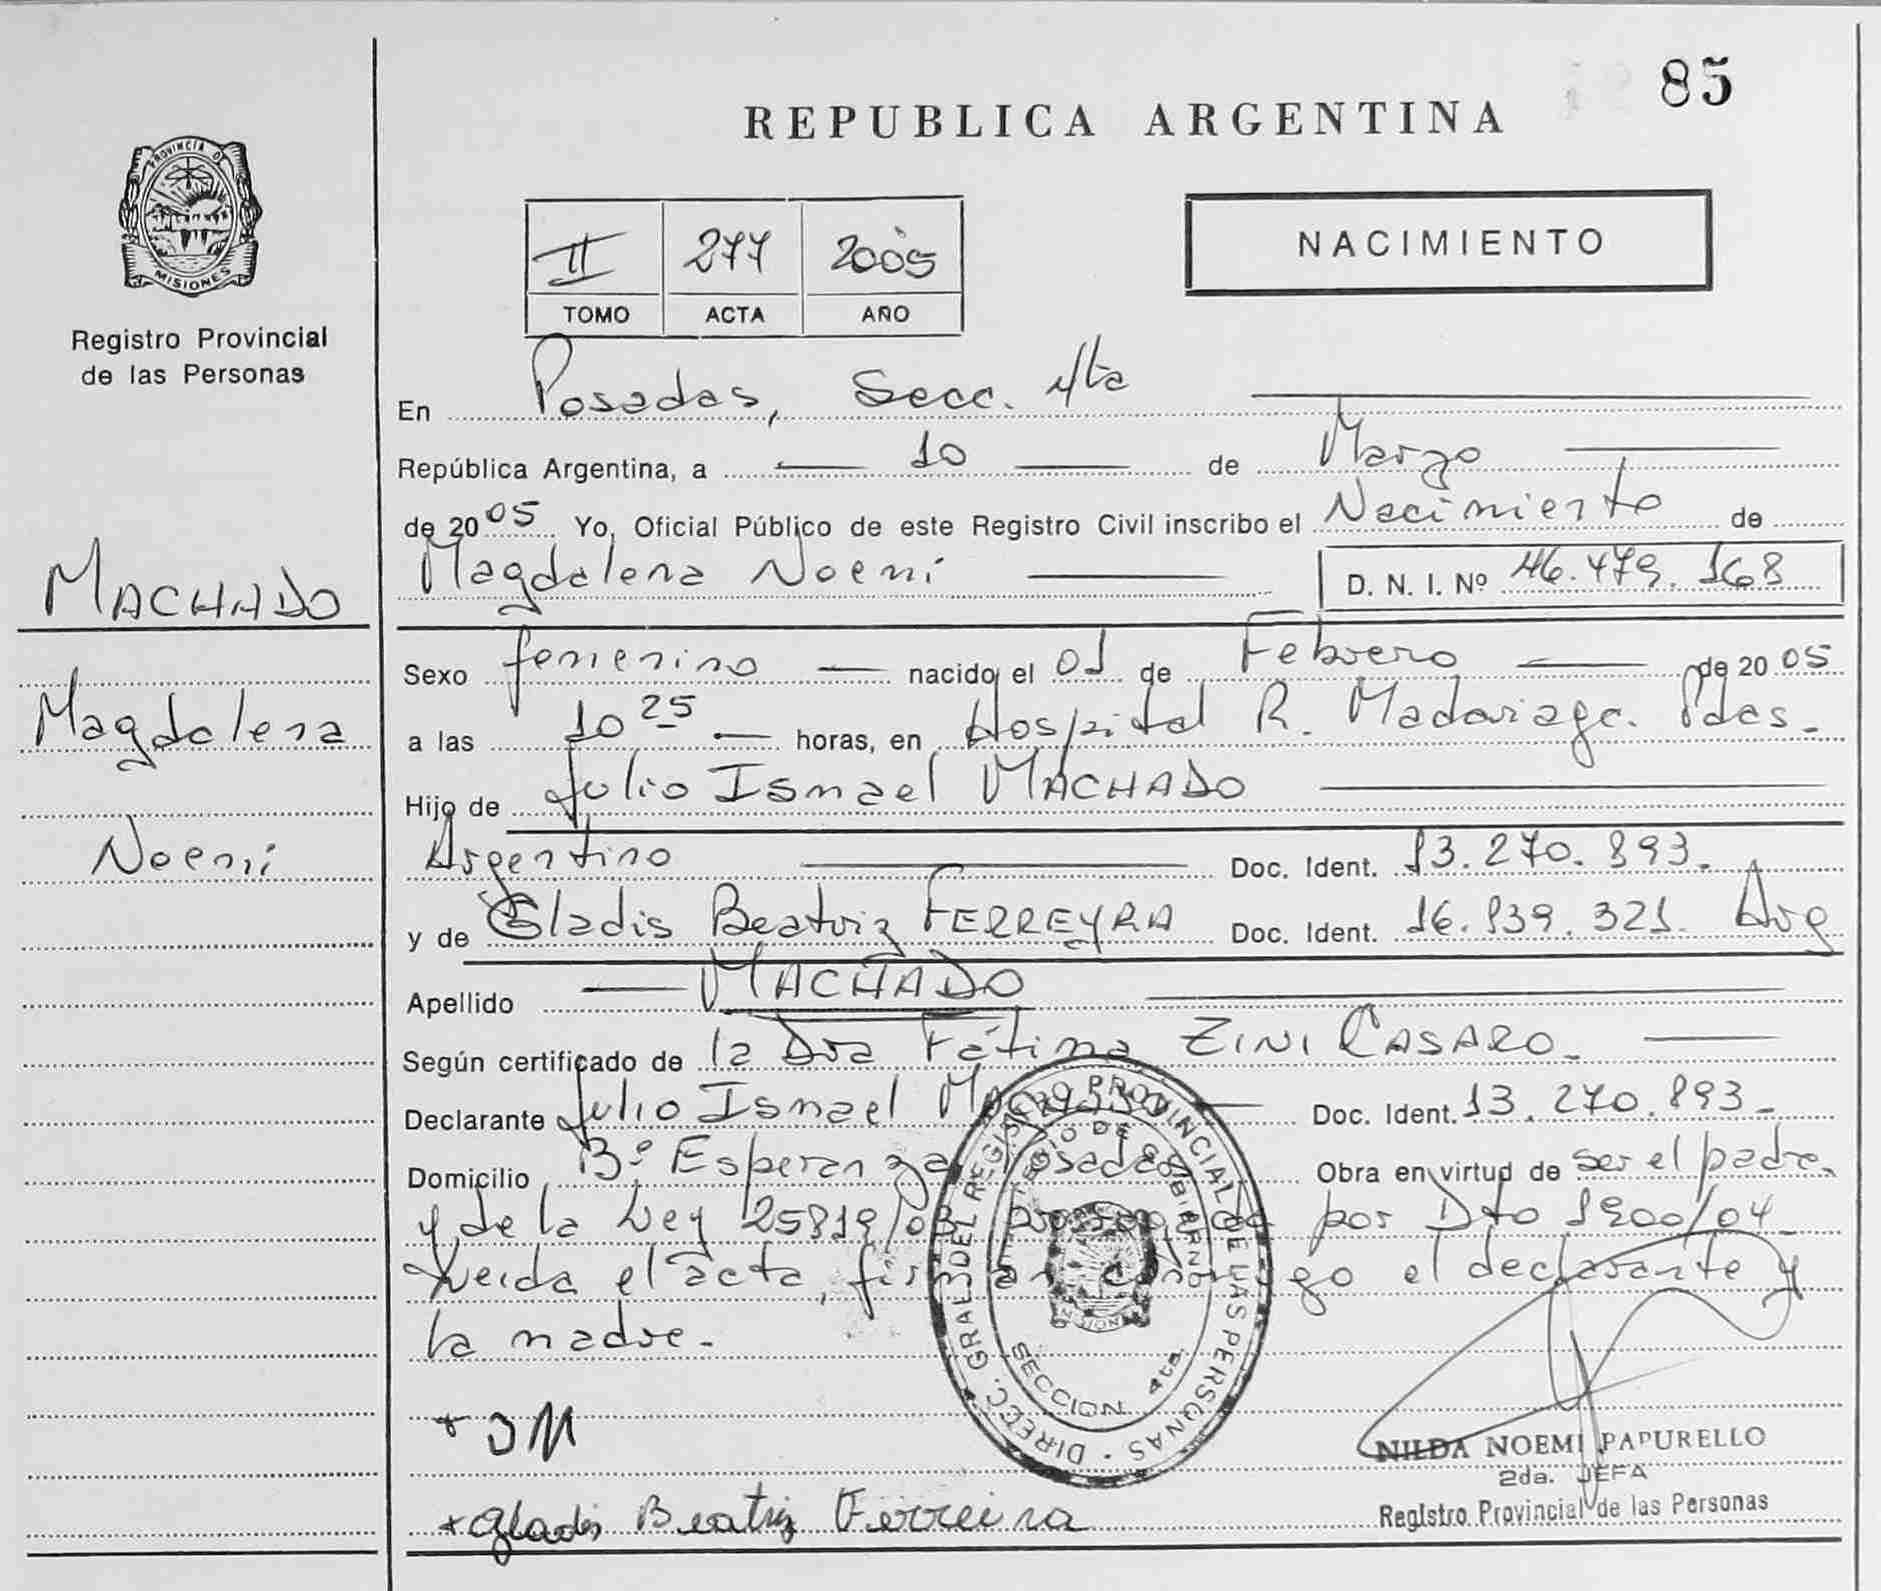 85
REPUBLICA ARGENTINA
PROVINCIA DE
MISIONES
Registro Provincial
de las Personas
II 277 2005
TOMO ACTA AÑO
NACIMIENTO
En Posadas, Secc. 4ta
República Argentina, a 10 de Marzo
de 2005 Yo, Oficial Público de este Registro Civil inscribo el Nacimiento de
Magdalena Noemí D. N. I. Nº 46.479.168
MACHADO
Magdalena
Noemí
Sexo femenino nacido el 01 de Febrero de 2005
a las 10 25 horas, en Hospital R. Madariaga. Pdas.
Hijo de Julio Ismael MACHADO
Argentino Doc. Ident. 13.270.893.
y de Gladis Beatriz FERREYRA Doc. Ident. 16.839.321. Arg
Apellido MACHADO
Según certificado de la Dra Fátima ZINI CASARO.
Declarante Julio Ismael Doc. Ident. 13.270.893.
Domicilio Bº Esperanza Posadas Obra en virtud de ser el padre.
y de la Ley 25819/03 por Dto 1900/04
Leida el acta, conmigo el declarante y
la madre.
DIRECC. GRAL DEL REGISTRO PROVINCIAL DE LAS PERSONAS
SECCION 4ta.
+ JM
+ Gladis Beatriz Ferreira
NILDA NOEMI PAPURELLO
2da. JEFA
Registro Provincial de las Personas